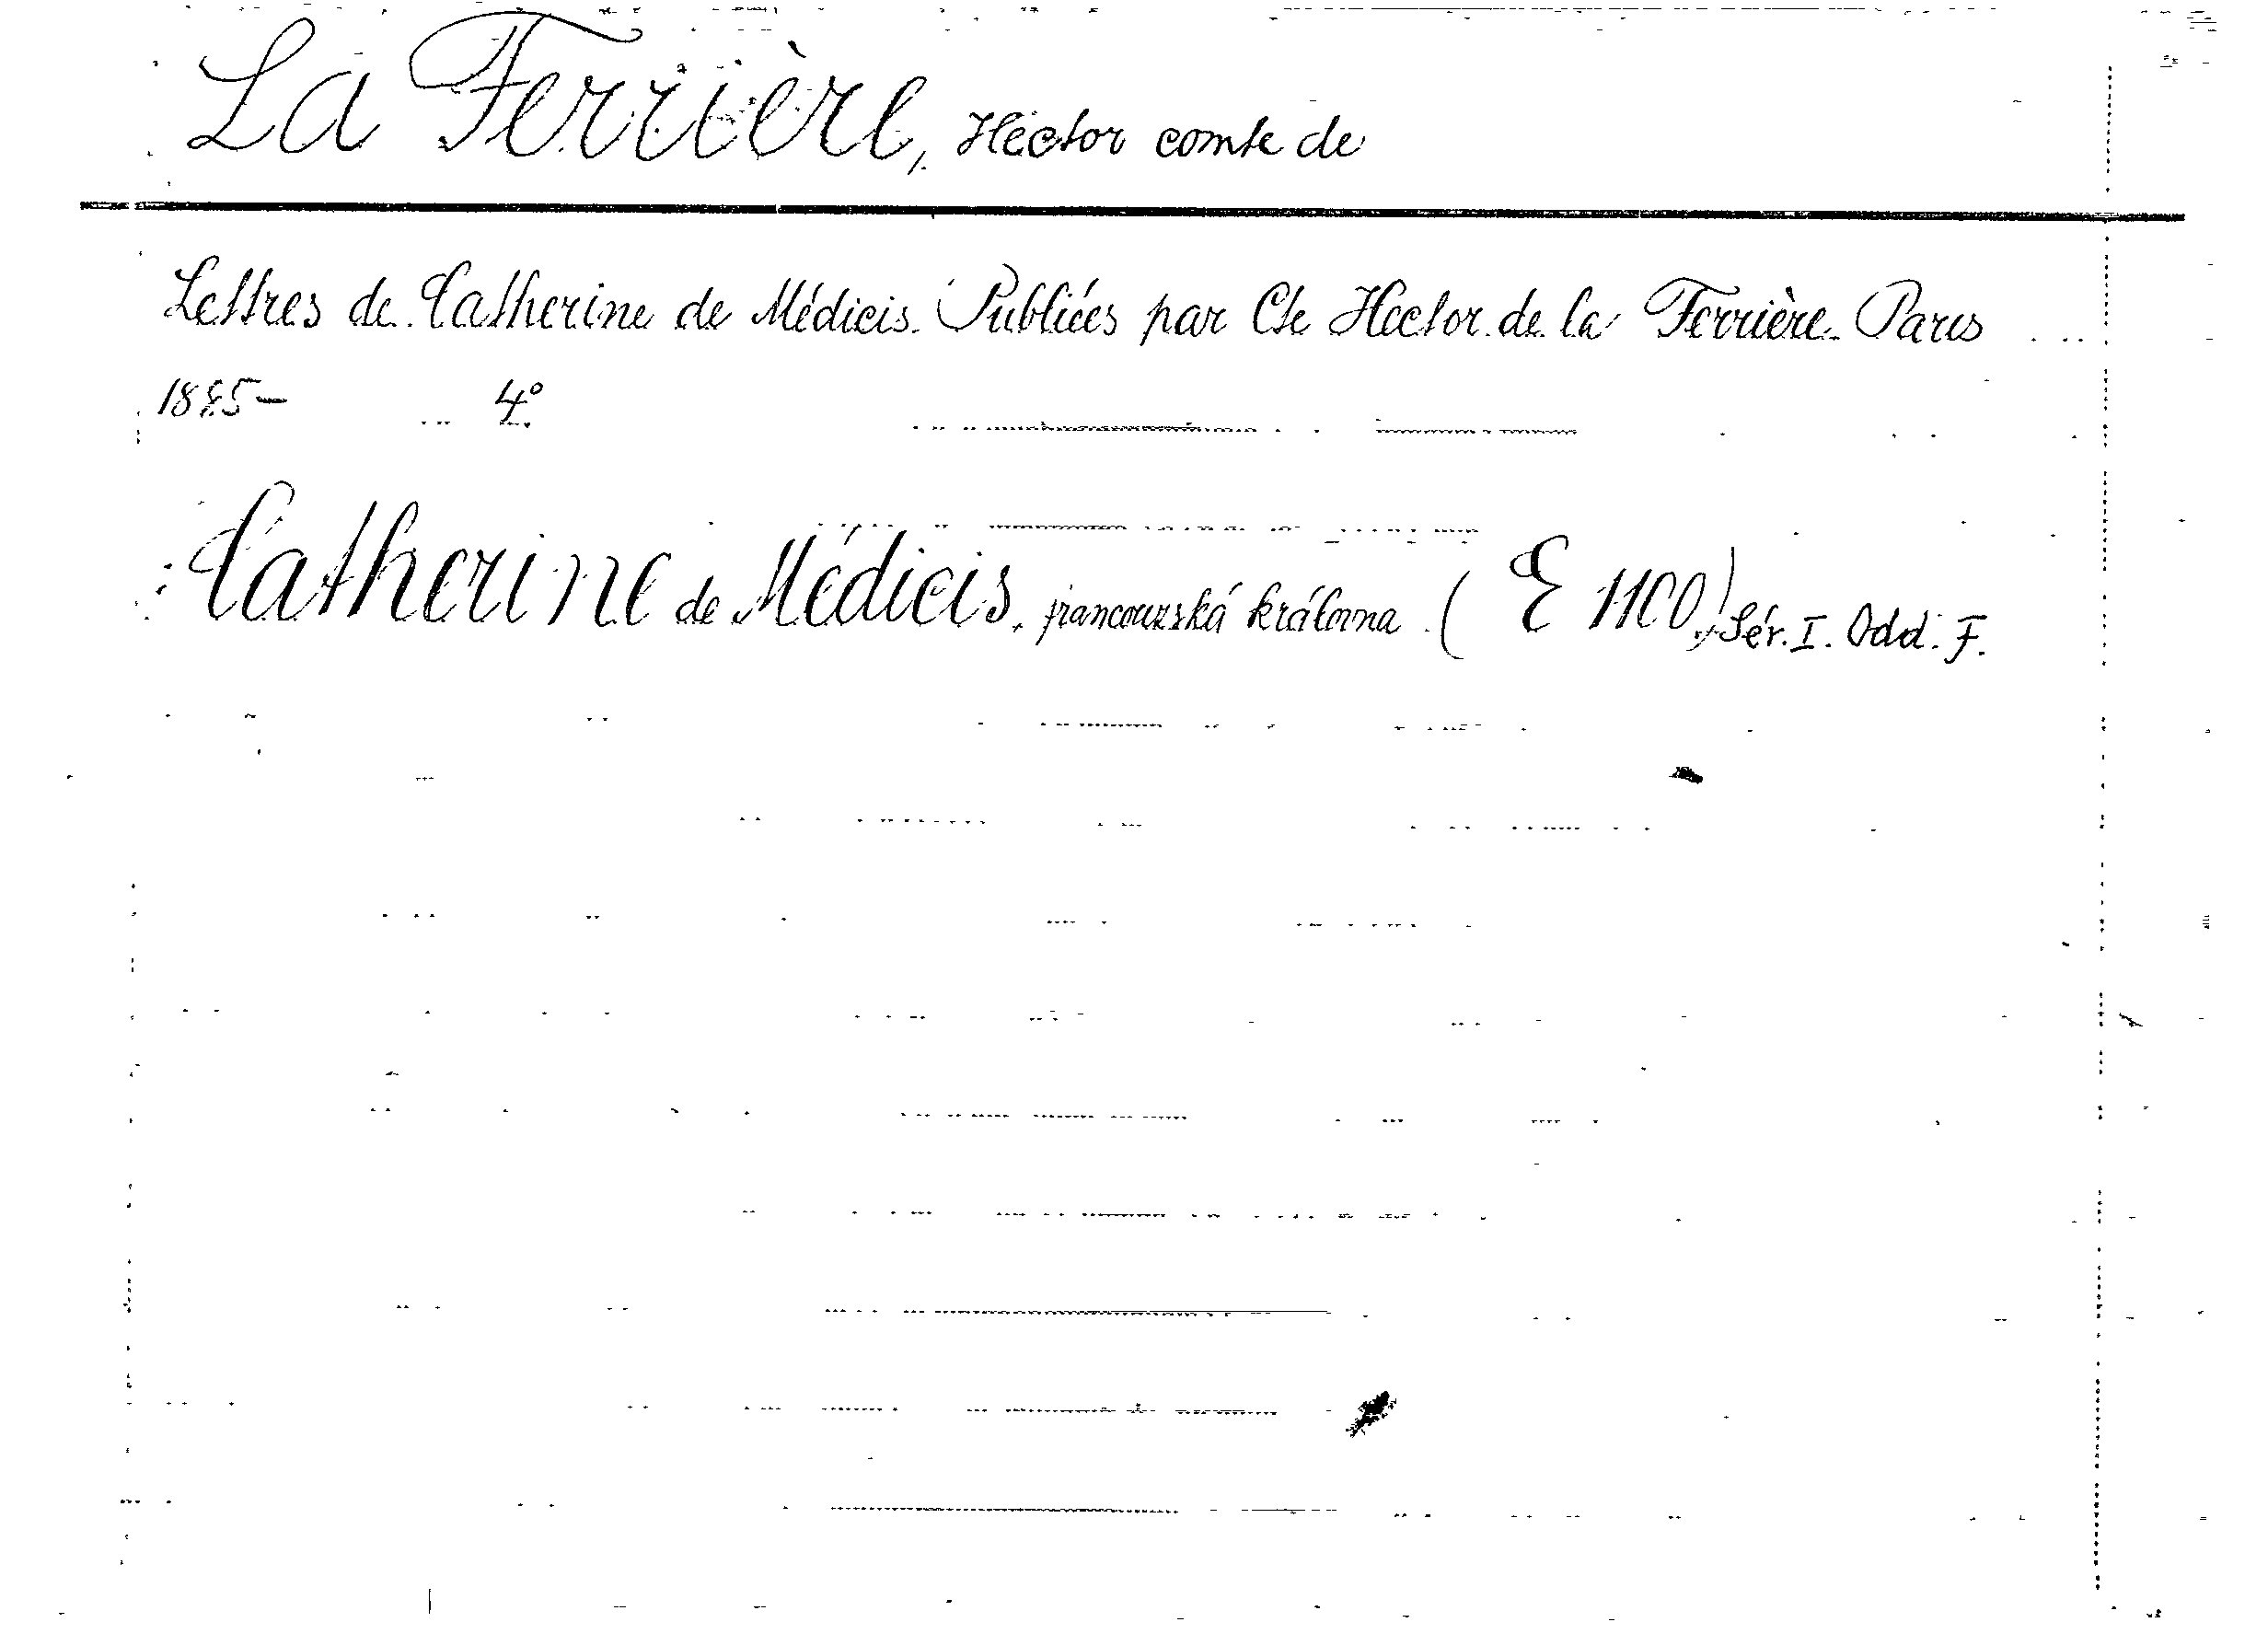 La Ferrière, Hector comte de
Lettres de Catherine de Médicis. Publiées par Cte Hector de la Ferrière. Paris
1885- 4°
Catherine de Médicis, francouzská královna. (E 1100) Sér. I. Odd. F.